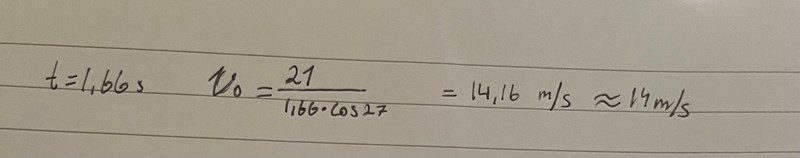 t=1,66s v₀ = 21 / 1,66·cos27 = 14,16 m/s ≈ 14m/s